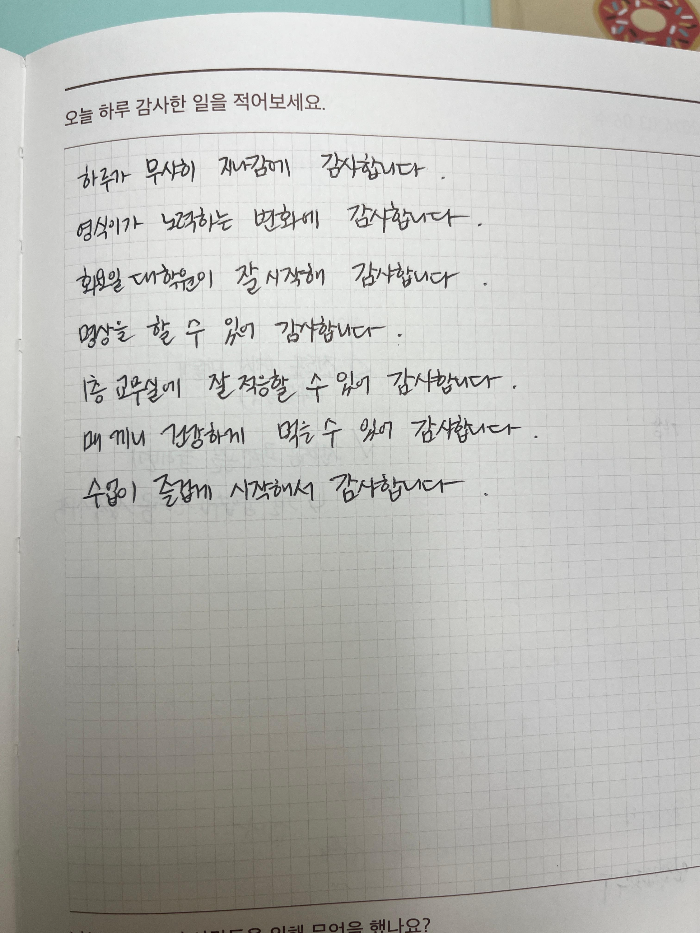 오늘 하루 감사한 일을 적어보세요.
하루가 무사히 지나감에 감사합니다.
영식이가 노력하는 변화에 감사합니다.
화요일 대학원이 잘 시작해 감사합니다.
명상을 할 수 있어 감사합니다.
1층 교무실에 잘 적응할 수 있어 감사합니다.
매 끼니 건강하게 먹을 수 있어 감사합니다.
수업이 즐겁게 시작해서 감사합니다.
위해 무엇을 했나요?